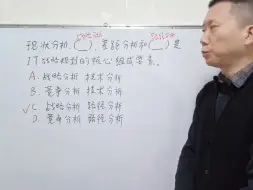 战略分析 路径分析
现状分析、( )、差距分析和( )是
IT战略规划的核心组成要素。
A. 战略分析 技术分析
B. 竞争分析 技术分析
✓C. 战略分析 路径分析
D. 竞争分析 路径分析